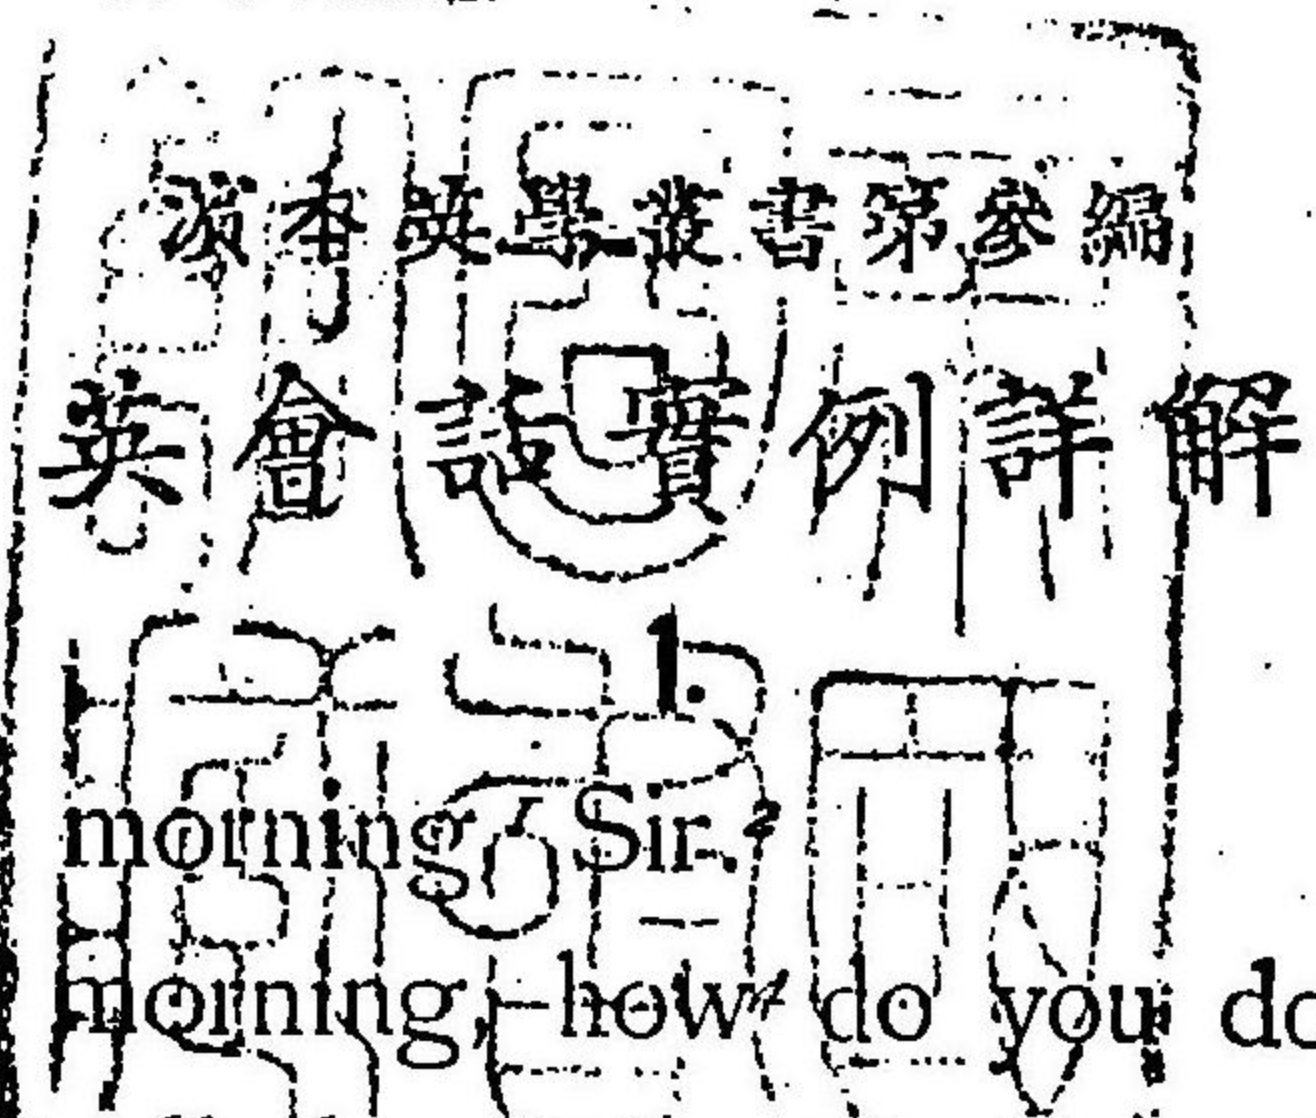 濱本英學叢書第參編
英會話實例詳解
1.
morning, Sir.
morning, how do you do